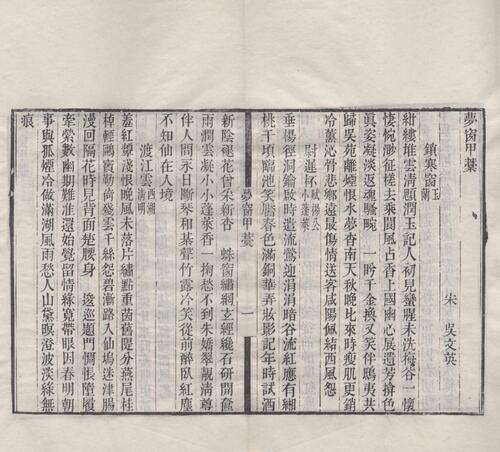 夢窗甲稾
宋 吳文英
鎖寒窗 玉蘭
紺縷堆雲清顋潤玉記人初見蠻腥未洗梅谷一懷
悽惋渺征槎去乘閬風占香上國幽心展遺芳掩色
眞姿凝淡返魂騷畹 一盼千金換又笑伴鴟夷共
歸吳苑離煙恨水夢杳南天秋晚比來時瘦肌更銷
冷薰沁骨悲鄉遠最傷情送客咸陽佩結西風怨
尉遲杯 賦楊公小蓬萊
垂楊徑洞鑰啟時遣流鶯迎涓涓暗谷流紅應有緗
桃千頃臨池笑靨春色滿銅華弄妝影記年時試酒
夢窗甲稾 一
新陰褪花曾采新杏 蛛窗繡網玄經纔石硯開奩
雨潤雲凝小小蓬萊香一掬愁不到朱嬌翠靚清尊
伴人閒永日斷琴和棊聲竹露冷笑從前醉臥紅塵
不知仙在人境
渡江雲 西湖清明
羞紅顰淺恨晚風未落片繡點重茵舊隄分燕尾桂
棹輕鷗寶勒倚殘雲千絲怨碧漸路入仙塢迷津腸
漫回隔花時見背面楚腰身 逡巡題門惆悵墮履
牽縈數幽期難準還始覺留情緣寬帶眼因春明朝
事與孤煙冷做滿湖風雨愁人山黛暝澄波淡綠無
痕